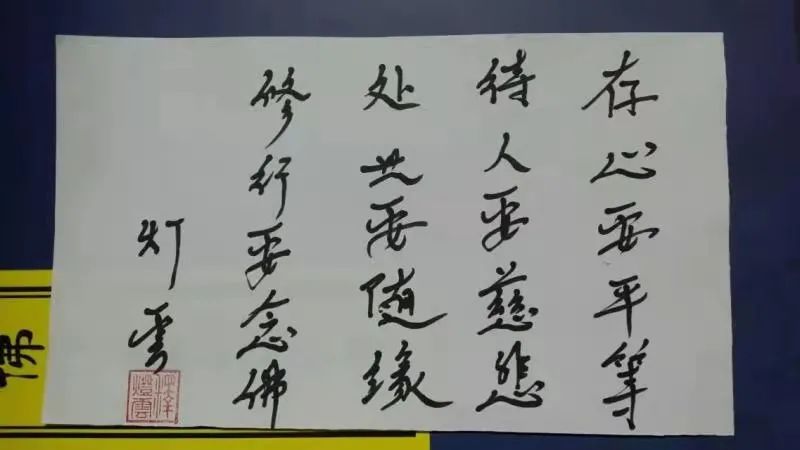 存心要平等
待人要慈悲
处世要随缘
修行要念佛
灯雲
燈雲
佛